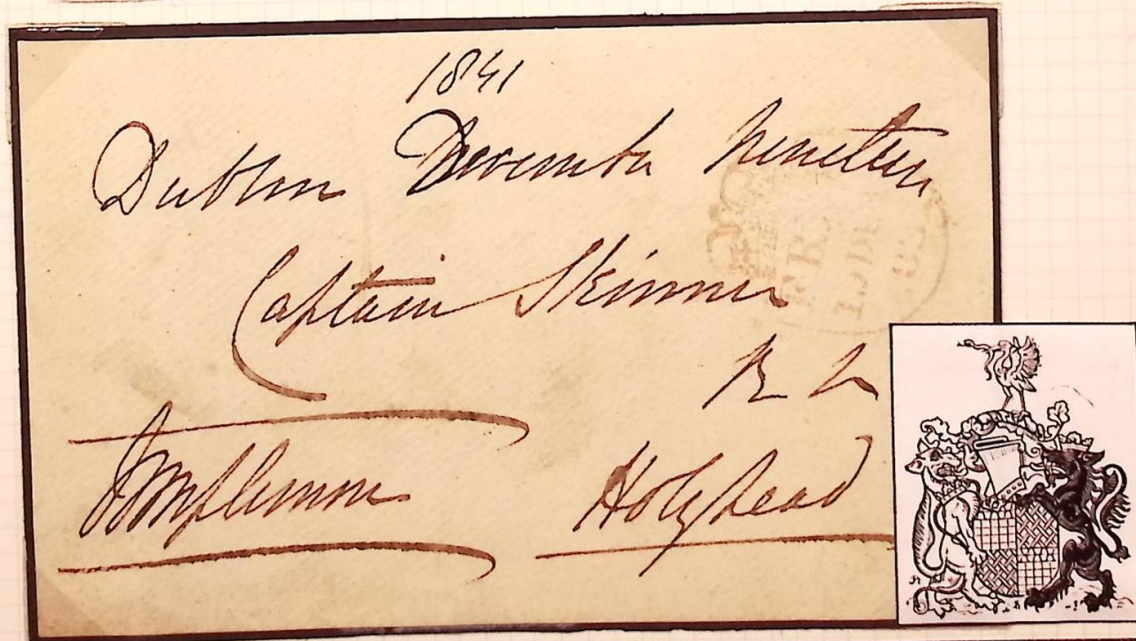 1831
Dublin December nineteen
Captain Skinner
R N
Templemore Holyhead